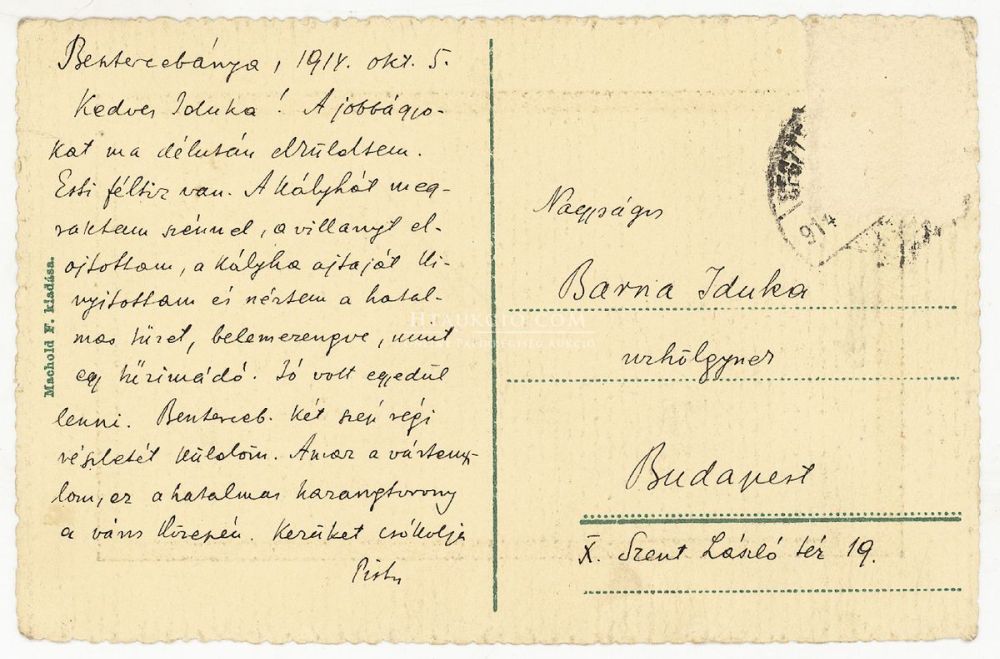 Beszterczebánya, 1914. okt. 5.
Kedves Iduka! A jobbágyo-
kat ma délután elküldtem.
Esti féltiz van. A kályhát meg-
raktam szénnel, a villanyt el-
ojtottam, a kályha ajtaját ki-
nyitottam és néztem a hatal-
mas tüzet, belemerengve, mint
egy tüzimádó. Jó volt egyedül
lenni. Beszterceb. két szép régi
részletét küldöm. Amaz a vártemp-
lom, ez a hatalmas harangtorony
a város közepén. Kezüket csókolja
Pista
Machold F. kiadása.
914
Nagyságos
Barna Iduka
HTAUKCIO.COM
urhölgynek
Budapest
X. Szent László tér 19.